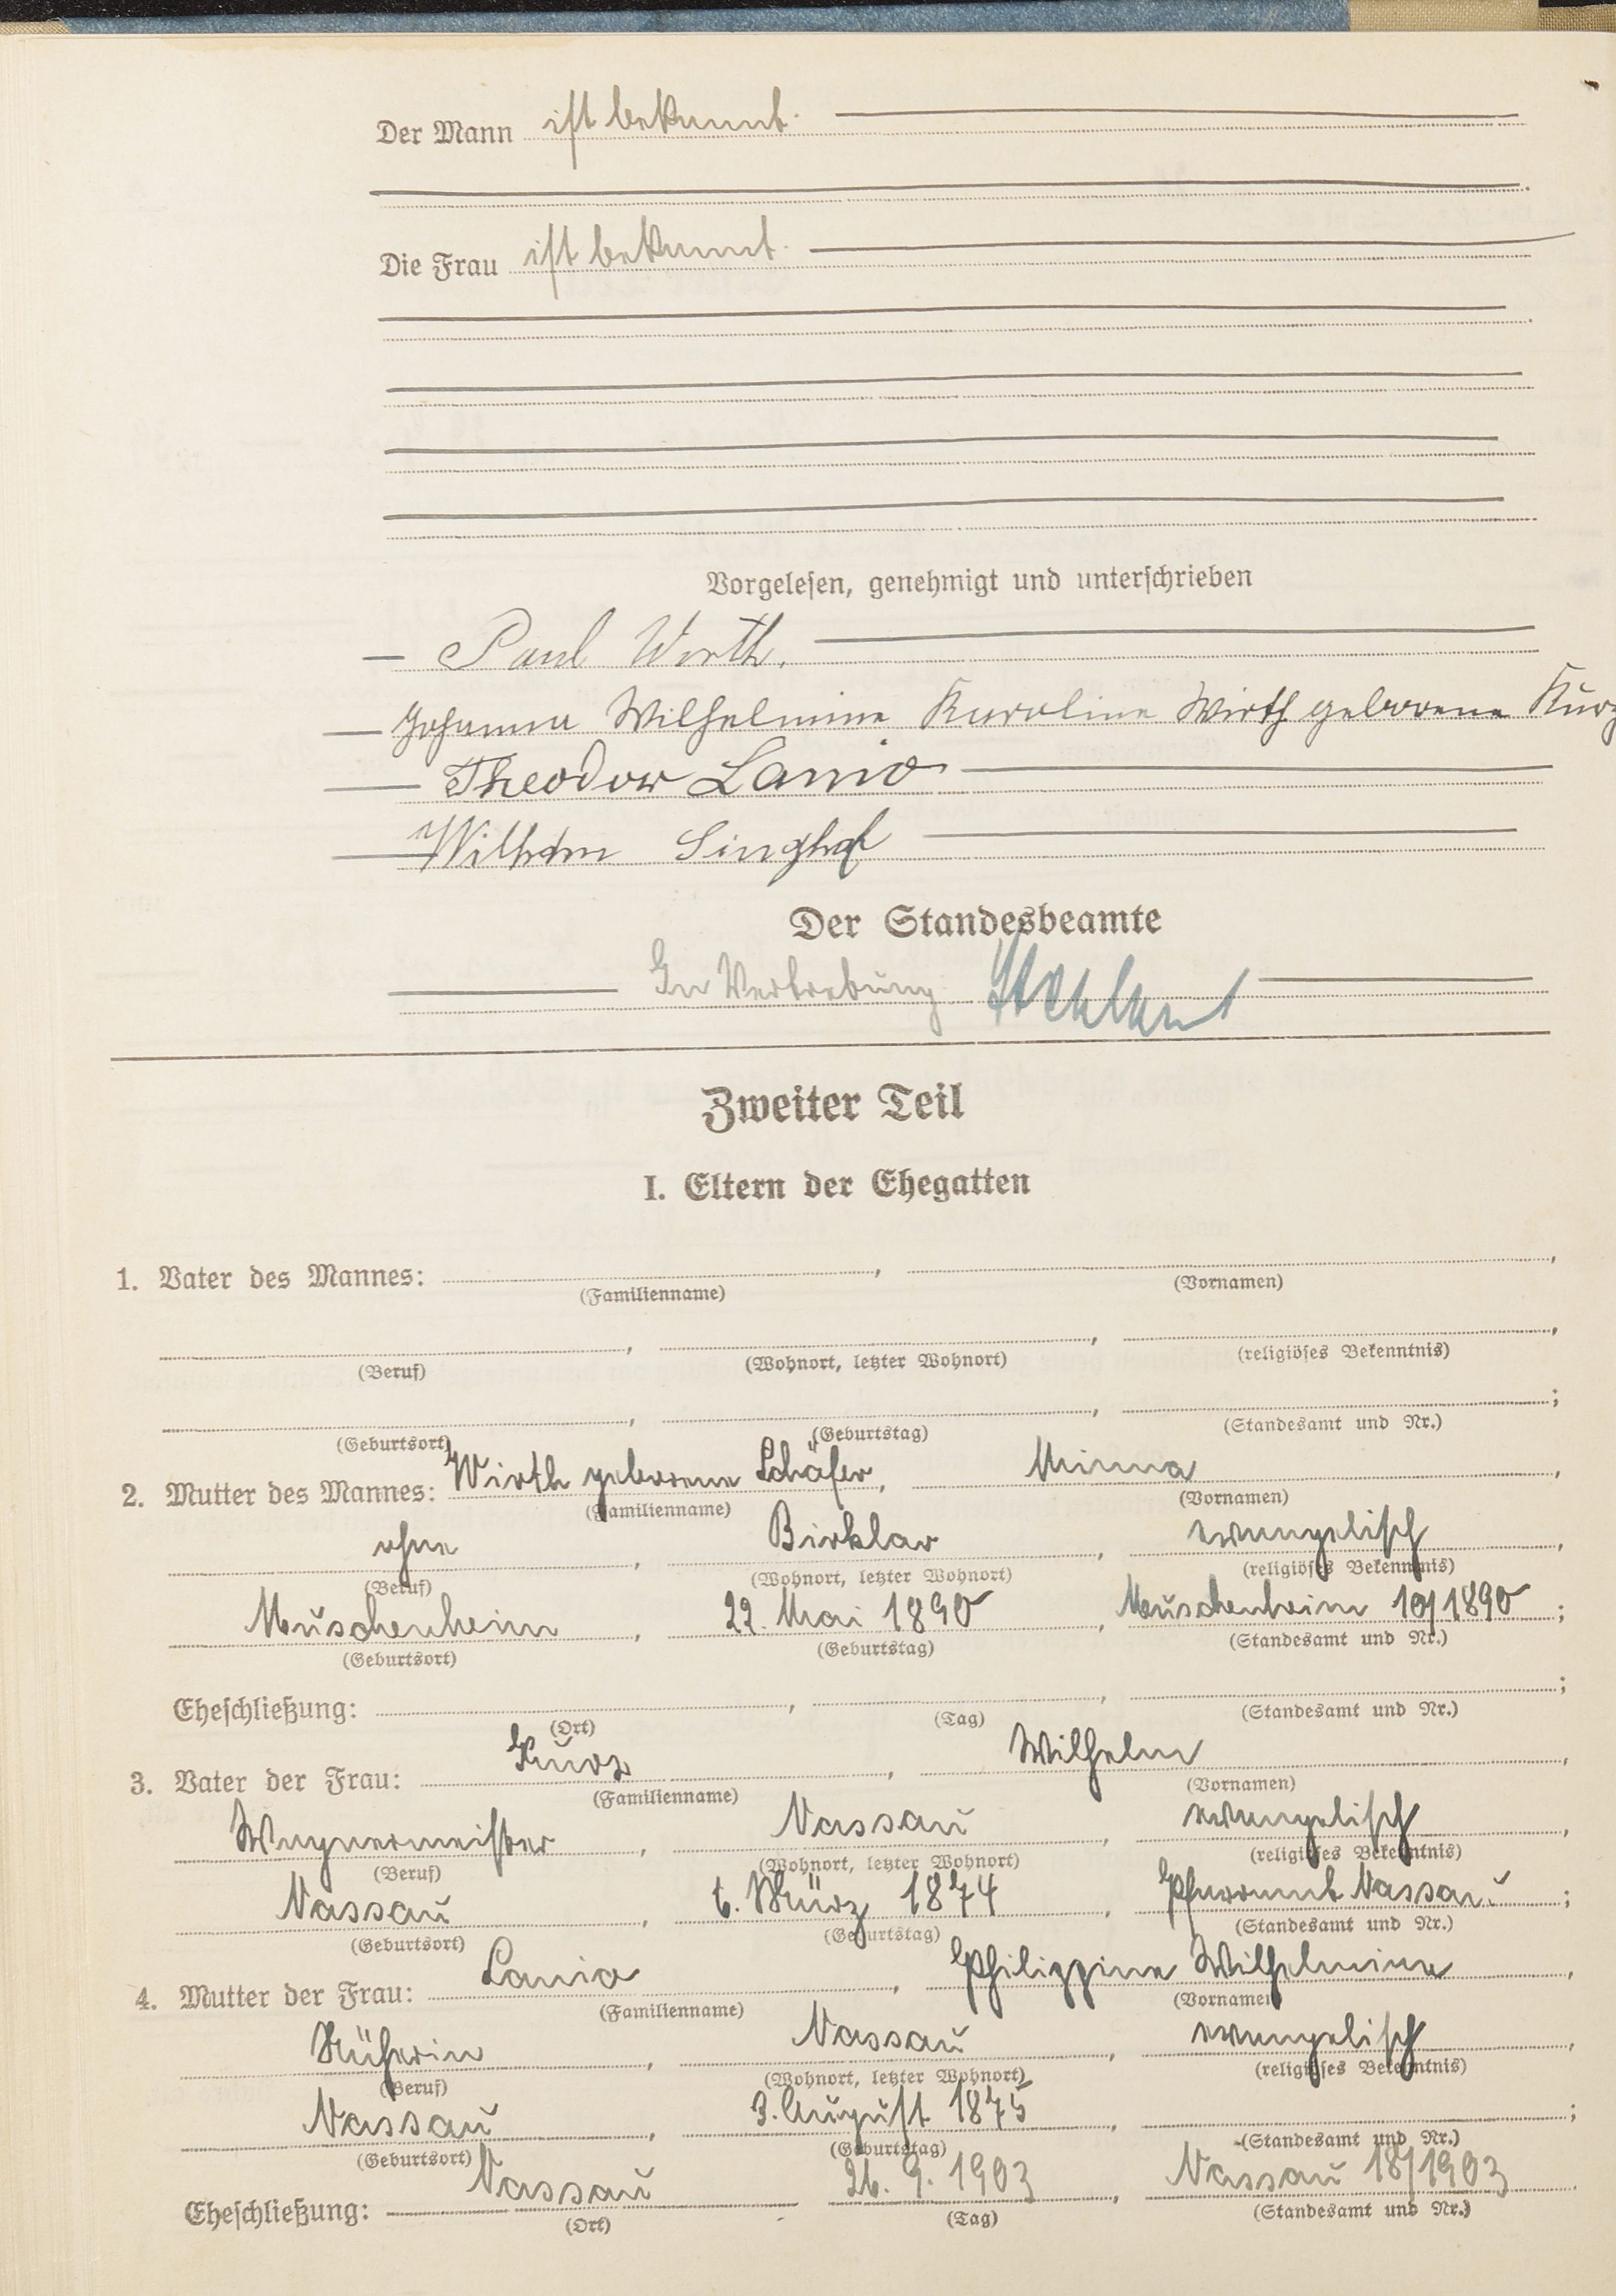 Der Mann ist bekannt.
Die Frau ist bekannt.
Vorgelesen, genehmigt und unterschrieben
Paul Wirth.
Johanna Wilhelmine Karoline Wirth geborene Kurz
Theodor Lanio
Wilhelm Singhof
Der Standesbeamte
In Vertretung
Zweiter Teil
I. Eltern der Ehegatten
1. Vater des Mannes: , ,
(Familienname) (Vornamen)
, , ,
(Beruf) (Wohnort, letzter Wohnort) (religiöses Bekenntnis)
, , ;
(Geburtsort) (Geburtstag) (Standesamt und Nr.)
2. Mutter des Mannes: Wirth geborene Schäfer, Minna ,
(Familienname) (Vornamen)
ohne , Birklar , evangelisch ,
(Beruf) (Wohnort, letzter Wohnort) (religiöses Bekenntnis)
Muschenheim , 22. Mai 1890 , Muschenheim 10/1890 ;
(Geburtsort) (Geburtstag) (Standesamt und Nr.)
Eheschließung: , , ;
(Ort) (Tag) (Standesamt und Nr.)
3. Vater der Frau: Kurz , Wilhelm ,
(Familienname) (Vornamen)
Wagnermeister , Nassau , evangelisch ,
(Beruf) (Wohnort, letzter Wohnort) (religiöses Bekenntnis)
Nassau , 6. März 1874 , Pfarramt Nassau ;
(Geburtsort) (Geburtstag) (Standesamt und Nr.)
4. Mutter der Frau: Lanio , Philippine Wilhelmine ,
(Familienname) (Vornamen)
Näherin , Nassau , evangelisch ,
(Beruf) (Wohnort, letzter Wohnort) (religiöses Bekenntnis)
Nassau , 3. August 1875 , ;
(Geburtsort) (Geburtstag) (Standesamt und Nr.)
Eheschließung: Nassau 26. 9. 1903 , Nassau 18/1903 .
(Ort) (Tag) (Standesamt und Nr.)